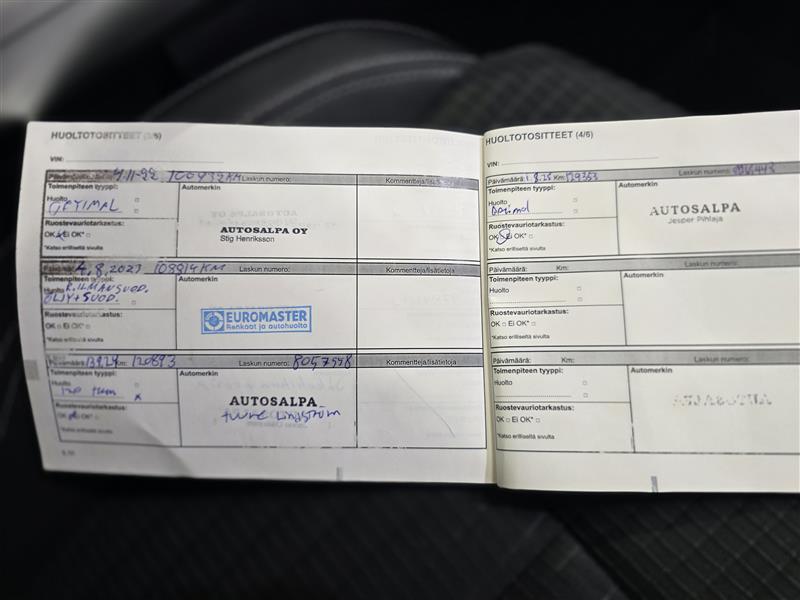 HUOLTOTOSITTEET (3/6)
VIN:
4.11-22 100432KM Laskun numero: Kommentteja/lisätietoja
Toimenpiteen tyyppi: Automerkin
Huolto
OPTIMAL
AUTOSALPA OY
Stig Henriksson
Ruostevauriotarkastus:
OK Ei OK*
*Katso erilliseltä sivulta
4.8.2023 108814KM Laskun numero: Kommentteja/lisätietoja
Toimenpiteen tyyppi: Automerkin
Huolto
R.ILMANSUOD.
ÖLJY+SUOD.
EUROMASTER
Renkaat ja autohuolto
Ruostevauriotarkastus:
OK Ei OK*
*Katso erilliseltä sivulta
Päivämäärä 13.9.24 Km: 120893 Laskun numero: 8057558 Kommentteja/lisätietoja
Toimenpiteen tyyppi: Automerkin
Huolto
120
AUTOSALPA
Ruostevauriotarkastus:
OK Ei OK*
*Katso erilliseltä sivulta
HUOLTOTOSITTEET (4/6)
VIN:
Päivämäärä: 1.8.25 Km: 129353 Laskun numero:
Toimenpiteen tyyppi: Automerkin
Huolto
Optimal
AUTOSALPA
Jesper Pihlaja
Ruostevauriotarkastus:
OK Ei OK*
*Katso erilliseltä sivulta
Päivämäärä: Km: Laskun numero:
Toimenpiteen tyyppi: Automerkin
Huolto
Ruostevauriotarkastus:
OK Ei OK*
*Katso erilliseltä sivulta
Päivämäärä: Km: Laskun numero:
Toimenpiteen tyyppi: Automerkin
Huolto
Ruostevauriotarkastus:
OK Ei OK*
*Katso erilliseltä sivulta